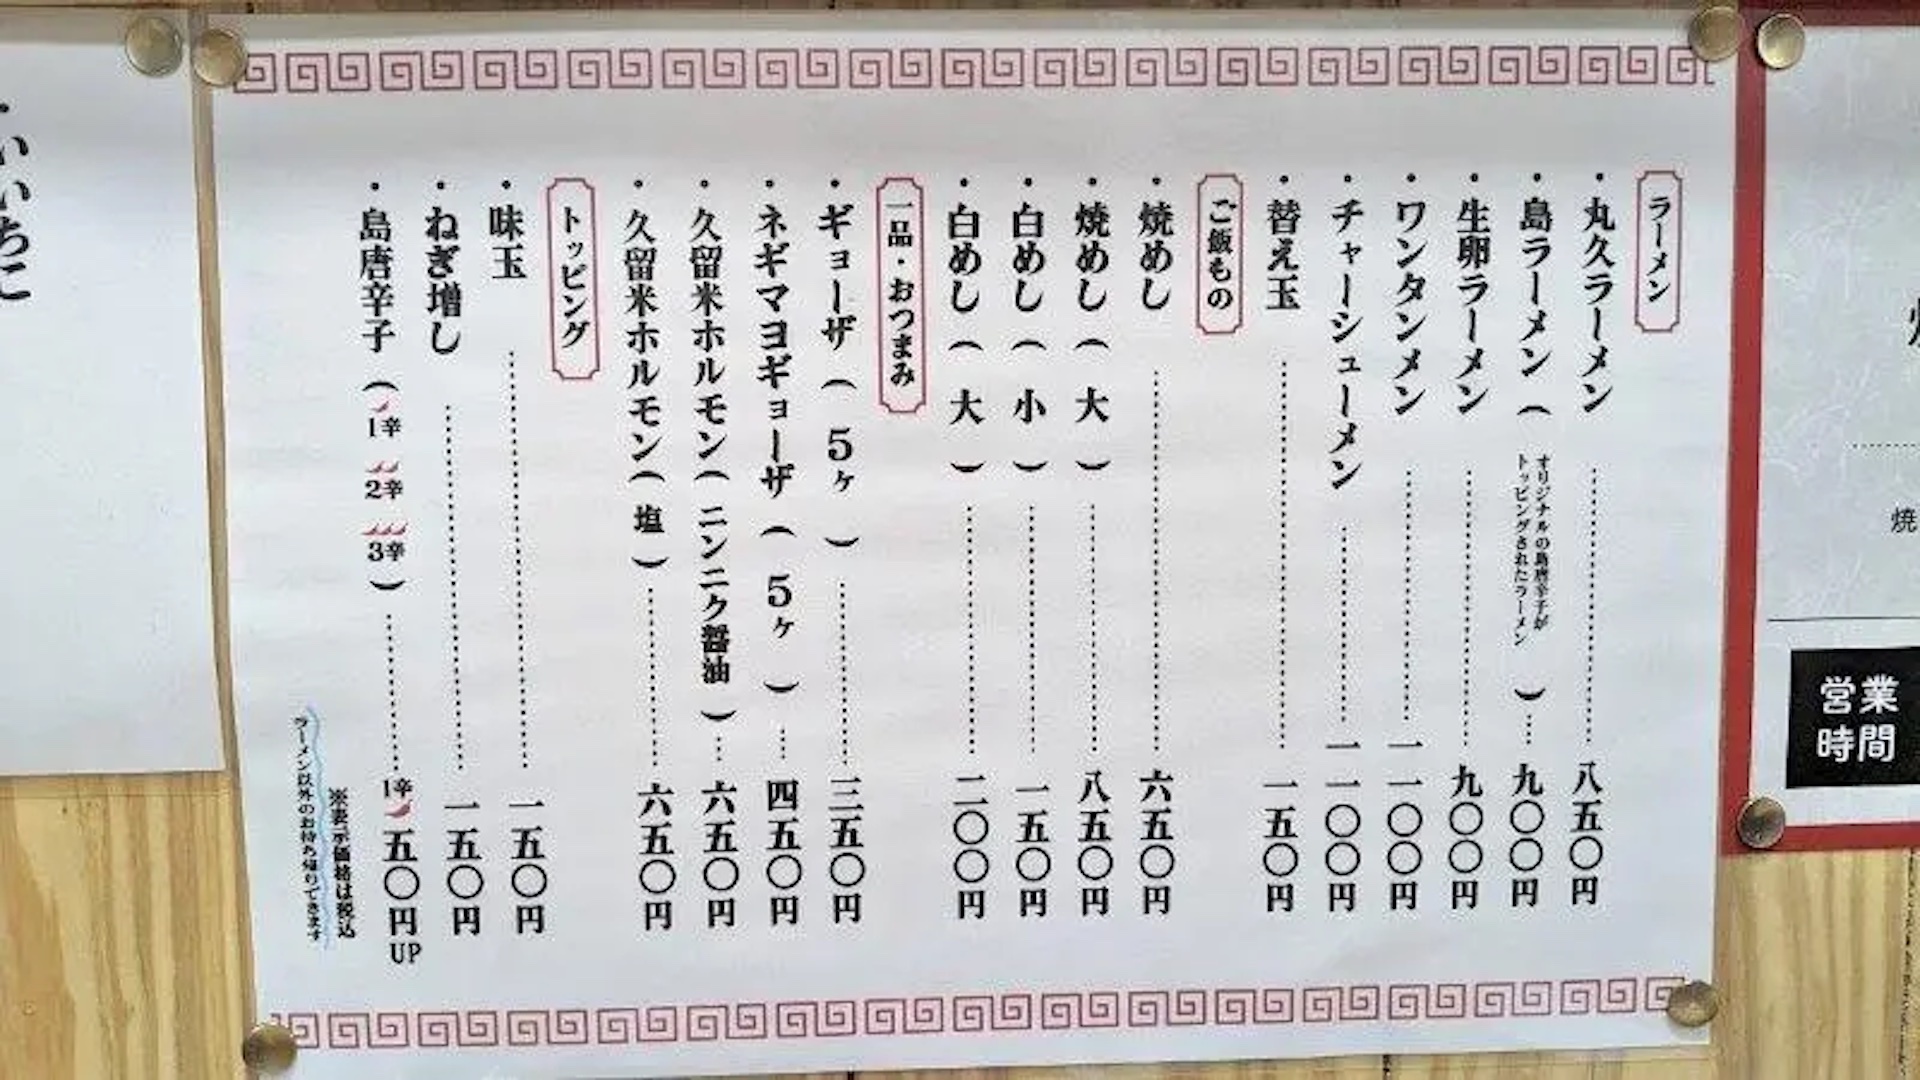 ラーメン
・丸久ラーメン 八五〇円
・島ラーメン(オリジナルの島唐辛子がトッピングされたラーメン) 九〇〇円
・生卵ラーメン 九〇〇円
・ワンタンメン 一一〇〇円
・チャーシューメン 一一〇〇円
・替え玉 一五〇円
ご飯もの
・焼めし 六五〇円
・焼めし(大) 八五〇円
・白めし(小) 一五〇円
・白めし(大) 二〇〇円
一品・おつまみ
・ギョーザ(5ヶ) 三五〇円
・ネギマヨギョーザ(5ヶ) 四五〇円
・久留米ホルモン(ニンニク醤油) 六五〇円
・久留米ホルモン(塩) 六五〇円
トッピング
・味玉 一五〇円
・ねぎ増し 一五〇円
・島唐辛子(1辛 2辛 3辛) 1辛 五〇円UP
※表示価格は税込
ラーメン以外のお持ち帰りできます
営業
時間
焼